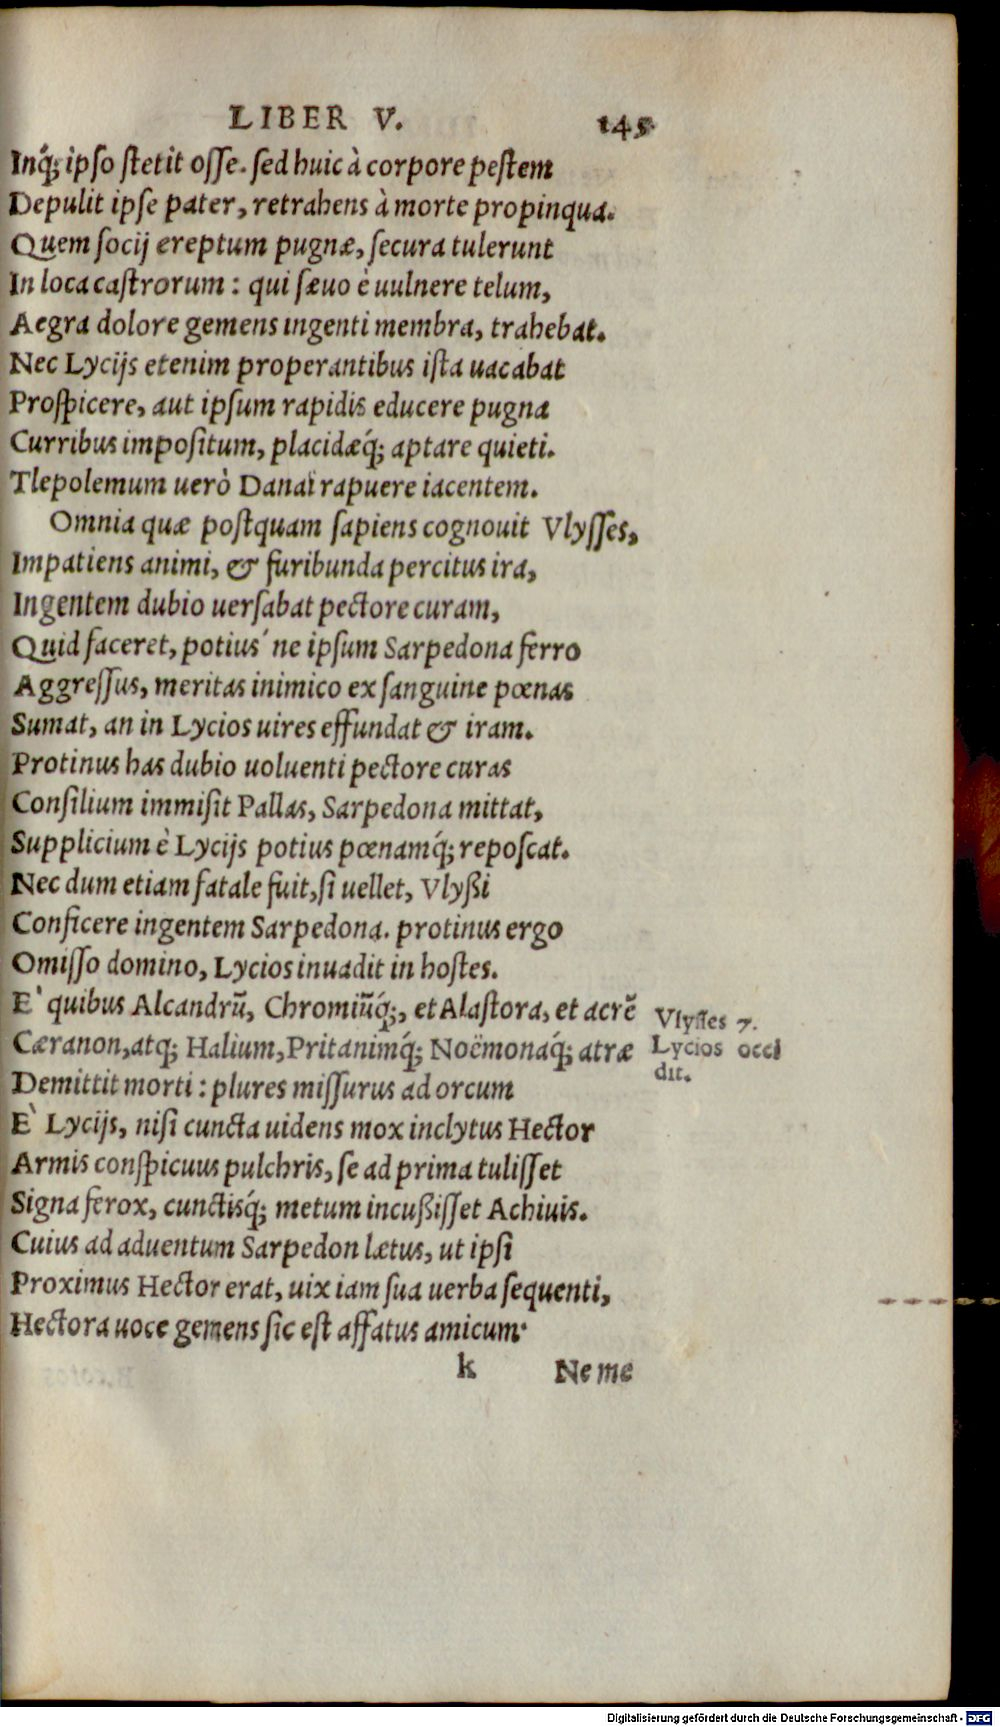 LIBER V. 145
Inq́; ipso stetit osse. sed huic à corpore pestem
Depulit ipse pater, retrahens à morte propinqua.
Quem socij ereptum pugnæ, secura tulerunt
In loca castrorum: qui sæuo è uulnere telum,
Aegra dolore gemens ingenti membra, trahebat.
Nec Lycijs etenim properantibus ista uacabat
Prospicere, aut ipsum rapidis educere pugna
Curribus impositum, placidæq́; aptare quieti.
Tlepolemum uerò Danai rapuere iacentem.
Omnia quæ postquam sapiens cognouit Vlysses,
Impatiens animi, & furibunda percitus ira,
Ingentem dubio uersabat pectore curam,
Quid faceret, potius´ne ipsum Sarpedona ferro
Aggressus, meritas inimico ex sanguine pœnas
Sumat, an in Lycios uires effundat & iram.
Protinus has dubio uoluenti pectore curas
Consilium immisit Pallas, Sarpedona mittat,
Supplicium è Lycijs potius pœnamq́; reposcat.
Nec dum etiam fatale fuit, si uellet, Vlyßi
Conficere ingentem Sarpedona. protinus ergo
Omisso domino, Lycios inuadit in hostes.
E` quibus Alcandrū, Chromiūq́;, et Alastora, et acrē
Cæranon, atq; Halium, Pritanimq́; Noëmonaq́; atræ
Demittit morti: plures missurus ad orcum
E` Lycijs, nisi cuncta uidens mox inclytus Hector
Armis conspicuus pulchris, se ad prima tulisset
Signa ferox, cunctisq́; metum incußisset Achiuis.
Cuius ad aduentum Sarpedon lætus, ut ipsi
Proximus Hector erat, uix iam sua uerba sequenti,
Hectora uoce gemens sic est affatus amicum.
Vlysses 7.
Lycios occi
dit.
k Ne me
Digitalisierung gefördert durch die Deutsche Forschungsgemeinschaft - DFG